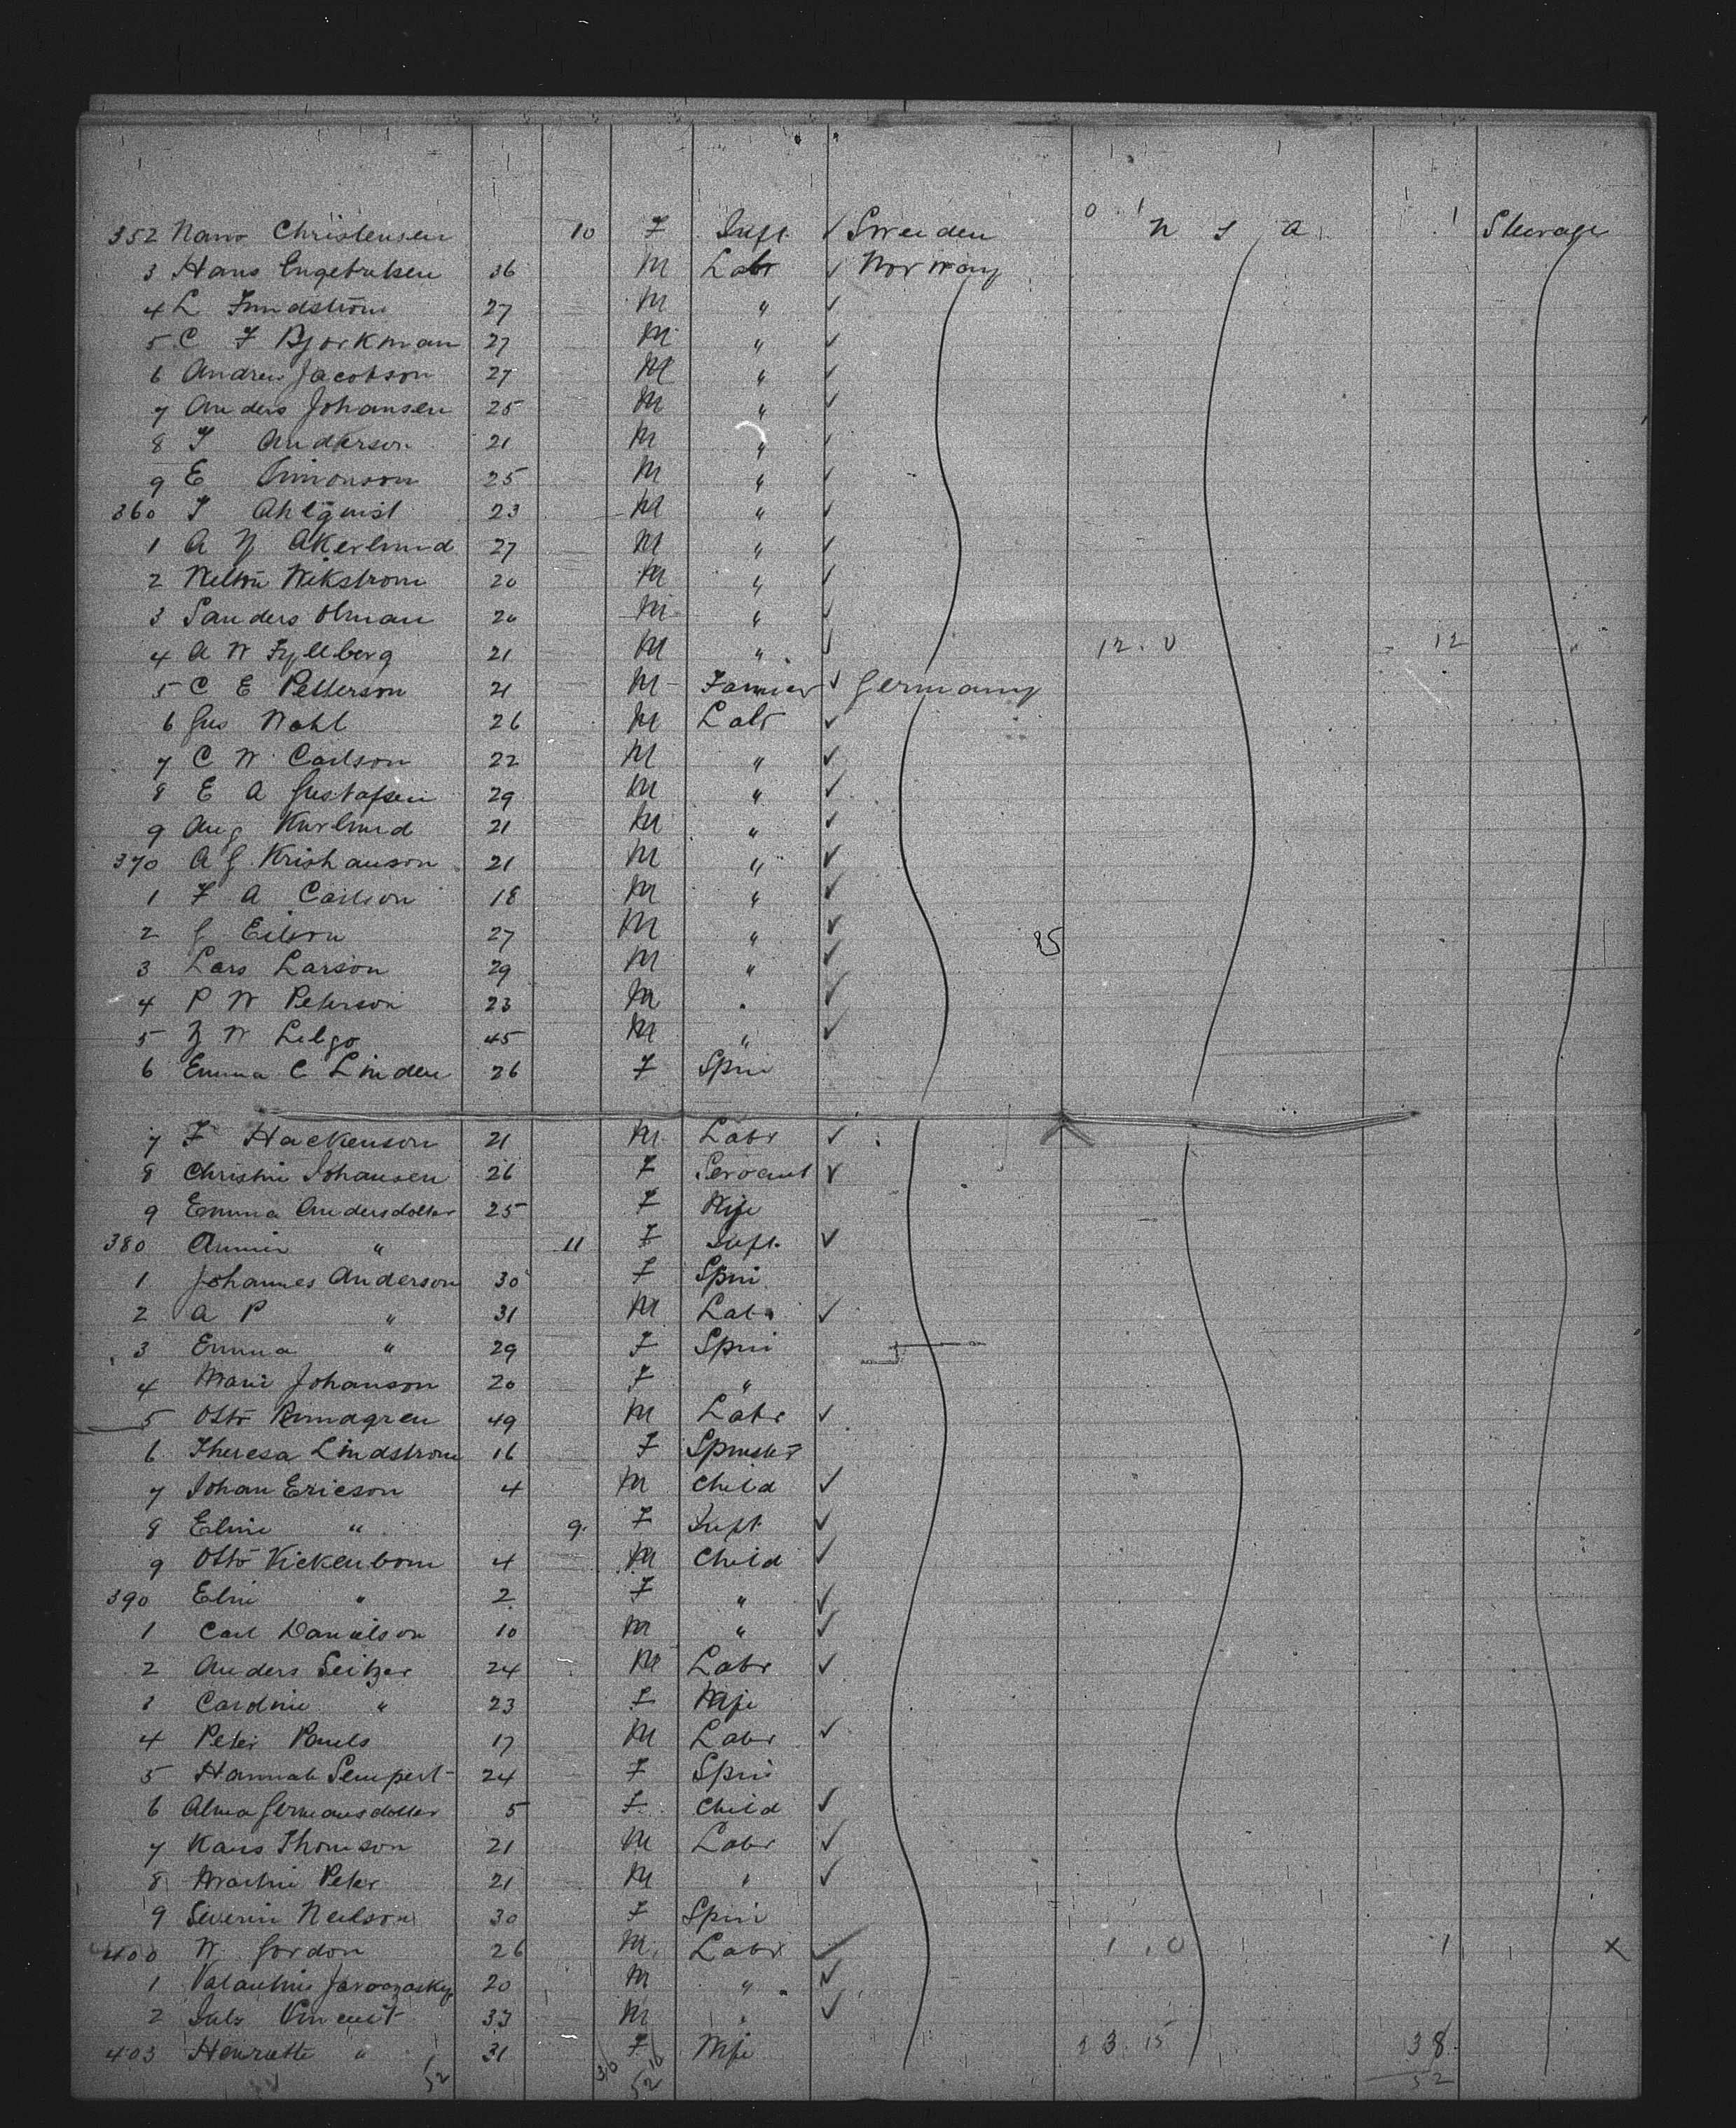 352 Nans Christensen 10 F Inft ✓ Sweden U S A Steerage
3 Hans Engebritsen 36 M Labr ✓ Norway
4 L Lundstrom 27 M " ✓
5 C F Bjorkman 27 M " ✓
6 Andrew Jacobson 27 M " ✓
7 Anders Johansen 25 M " ✓
8 J Anderson 21 M " ✓
9 E Simonson 25 M " ✓
360 J Ahlquist 23 M " ✓
1 A Y Akerlund 27 M " ✓
2 Wikstrom 20 M " ✓
3 Sanders Olman 20 M " ✓
4 A W Fyllberg 21 M " ✓ 12.0 12
5 C E Petterson 21 M Farmer ✓ Germany
6 Gus Wahl 26 M Labr ✓
7 C W Carlson 22 M " ✓
8 E A Gustafsen 29 M " ✓
9 Aug Karlund 21 M " ✓
370 A G Kristianson 21 M " ✓
1 F A Carlson 18 M " ✓
2 G Eilson 27 M " ✓ 25
3 Lars Larson 29 M " ✓
4 P W Peterson 23 M " ✓
5 W Lelgo 45 M " ✓
6 Emma C Linden 26 F Spin
7 F Hackenson 21 M Labr ✓
8 Christin Johansen 26 F Servant ✓
9 Emma Andersdotter 25 F Wife
380 Annie " 11 F Inft ✓
1 Johannes Anderson 30 F Spin
2 A P " 31 M Labr ✓
3 Emma " 29 F Spin
4 Marie Johanson 20 F "
5 Otto 49 M Labr ✓
6 Theresa Lindstrom 16 F Spinster
7 Johan Ericson 4 M Child ✓
8 Elin " 9 F Inft ✓
9 Otto Kickenbom 4 M Child ✓
390 Elin " 2 F " ✓
1 Carl Danielson 10 M " ✓
2 Anders Seitzer 24 M Labr ✓
3 Caroline " 23 F Wife
4 Peter Pauls 17 M Labr ✓
5 Hannah Sempert 24 F Spin
6 Alma Germansdotter 5 F Child ✓
7 Hans Thomson 21 M Labr ✓
8 Martin Peter 21 M " ✓
9 Severin Neilson 30 F Spin
400 W Gordon 26 M Labr ✓ 1.0 1 X
1 Valantine 20 M " ✓
2 Vincent 33 M " ✓
403 Henriette " 31 F Wife 23.15 38
52 36 16 52 52